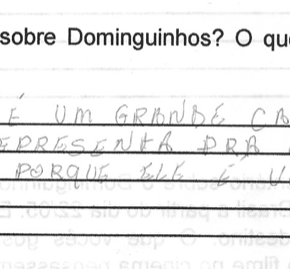 sobre Dominguinhos? O qu
É UM GRANDE CA
EPRESENTA PRA
PORQUE ELE É U